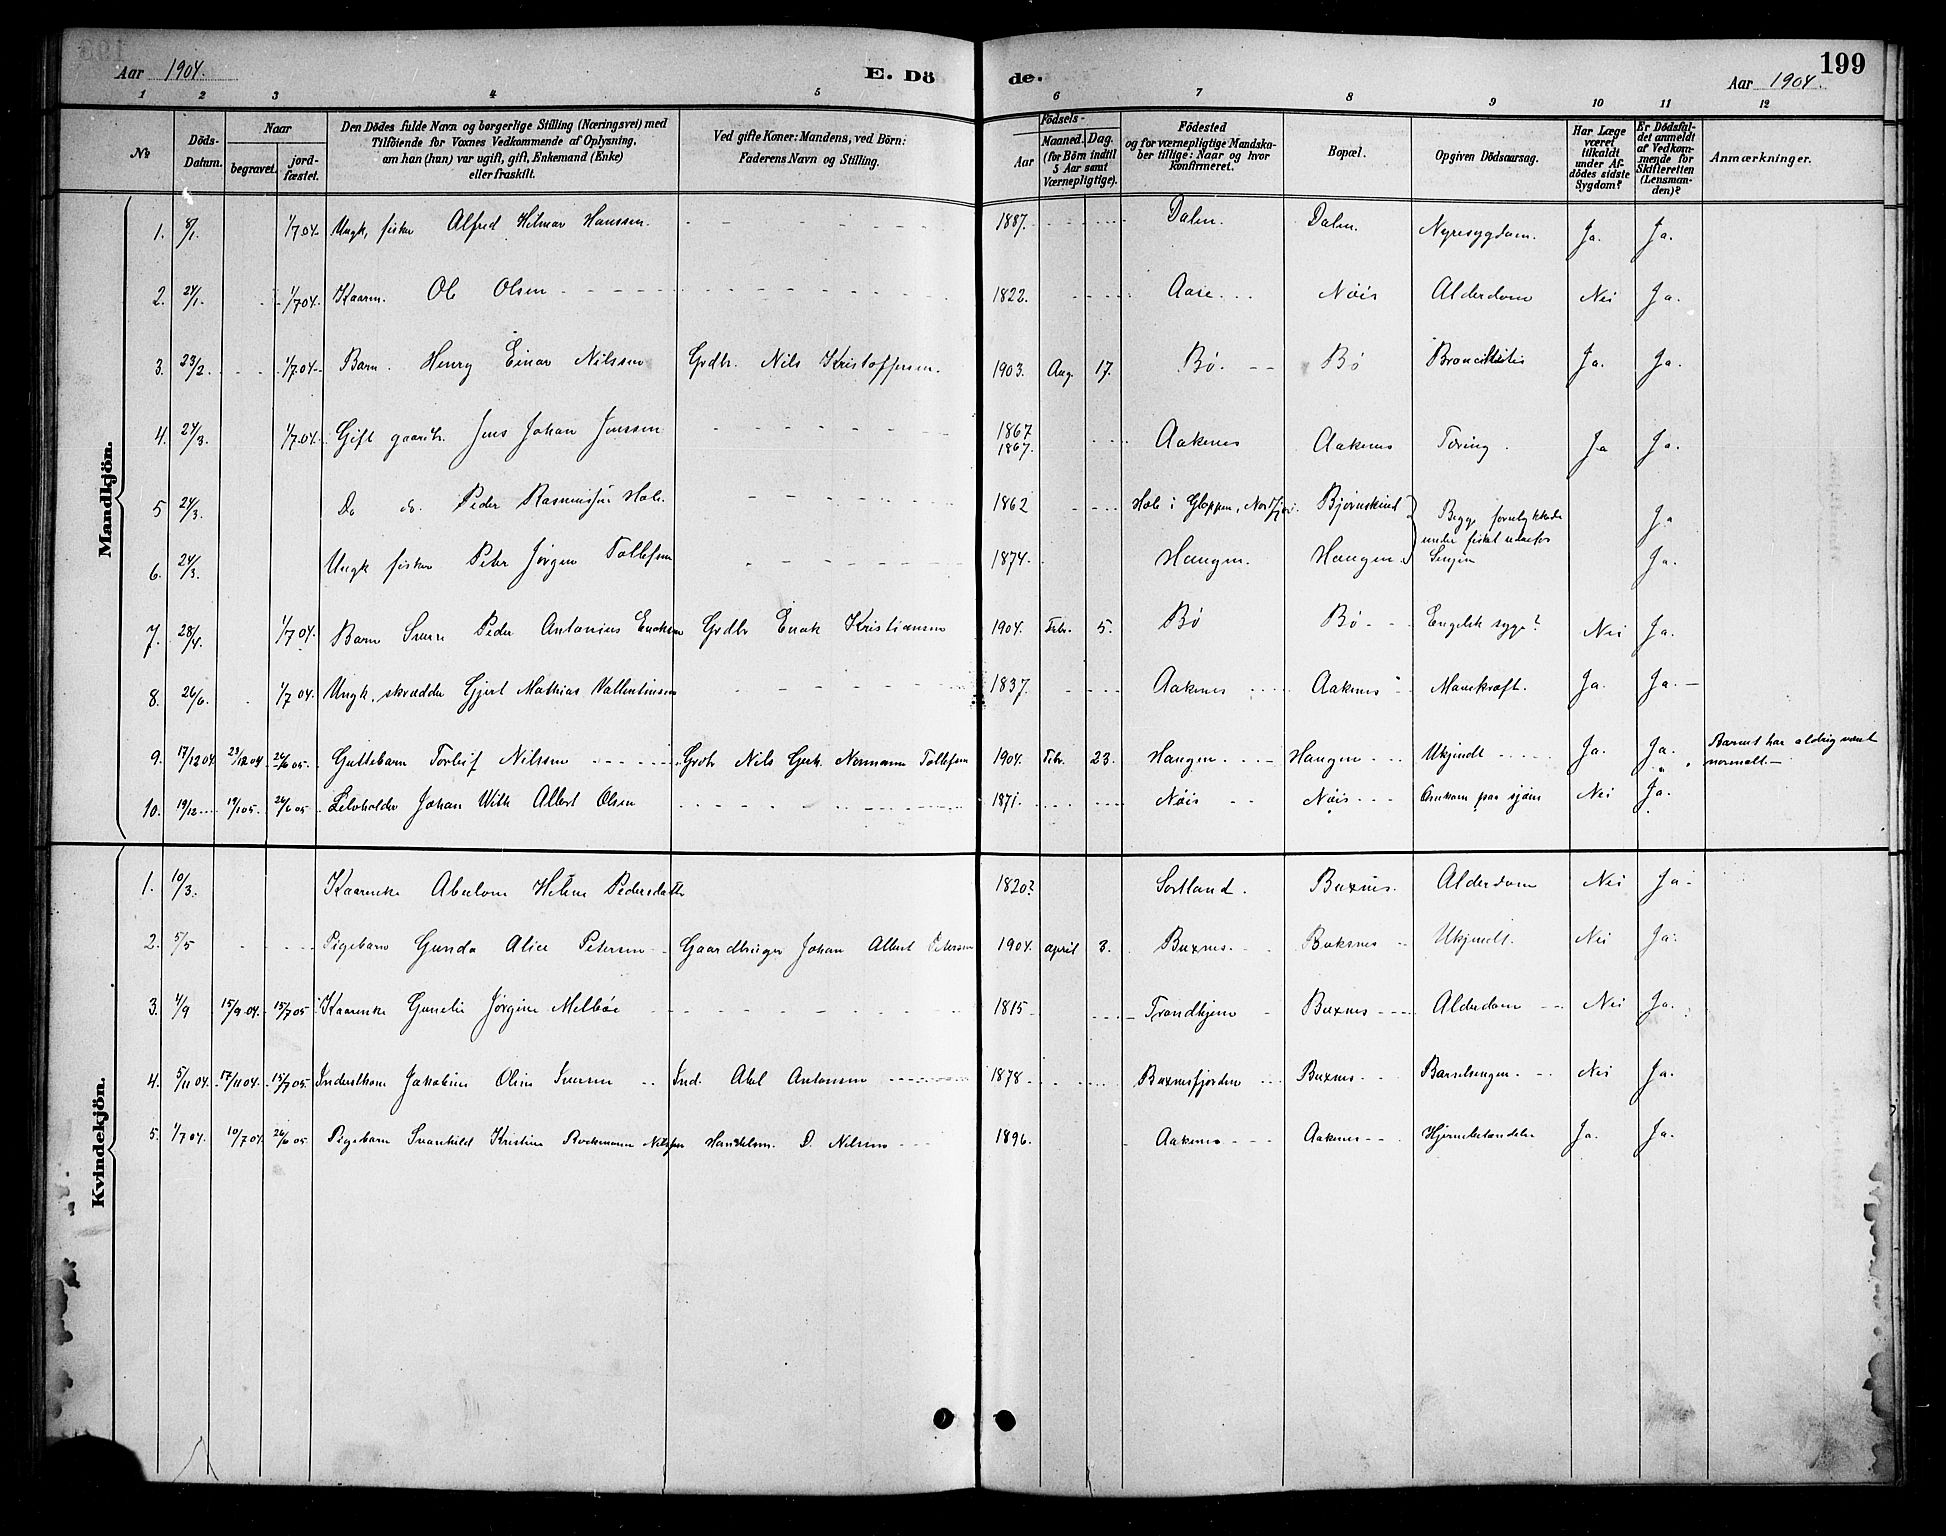 Aar 1904.
E. Dö
de.
Aar 1904.
199
1 2 3 4 5 6 7 8 9 10 11 12
№
Döds-
Datum.
Naar
begravet.
jord-
fæstet.
Den Dödes fulde Navn og borgerlige Stilling (Næringsvei) med
Tilföiende for Voxnes Vedkommende af Oplysning,
om han (hun) var ugift, gift, Enkemand (Enke)
eller fraskilt.
Ved gifte Koner: Mandens, ved Börn:
Faderens Navn og Stilling.
Födsels-
Aar
Maaned. Dag.
(for Börn indtil
5 Aar samt
Værnepligtige).
Födested
og for værnepligtige Mandska-
ber tillige: Naar og hvor
konfirmeret.
Bopæl.
Opgiven Dödsaarsag.
Har Læge
været
tilkaldt
under Af-
dödes sidste
Sygdom?
Er Dödsfal-
det anmeldt
af Vedkom-
mende for
Skifteretten
(Lensman-
den)?
Anmærkninger.
Mandkjön.
1. 8/1. 1/7 04. Ungk. fisker Alfred Hilmar Hanssen. 1887. Dalen. Dalen. Nyresygdom. Ja. Ja.
2. 24/1. 1/7 04. Kaarm. Ole Olsen 1822. Aase Nöis Alderdom Nei Ja.
3. 23/2. 1/7 04. Barn. Henry Einar Nilssen Grdbr. Nils Kristoffersen. 1903. Aug. 17. Bö. Bö Bronchitis Ja. Ja.
4. 24/3. 1/7 04. Gift gaardb. Jens Johan Jenssen 1867 1867. Aakenes Aakenes Tæring. Ja Ja.
5 24/3. Do do. Peder Rasmussen Hole. 1862 Hole i Gloppen, Nordfjor. Bjørnskind Begge forulykkede Ja
under fisket udenfor
6. 24/3. Ungk fisker Peter Jørgen Tollefsen 1874. Haugen. Haugen. Senjen Ja.
7. 28/4. 1/7 04. Barn Sverre Peder Antonius Enoksen Grdbr Enok Kristiansen 1904. Febr. 5. Bö Bö Engelsk syge? Nei Ja.
8. 26/6. 1/7 04. Ungk. skrædder Gjert Mathias Vallentinsen 1837. Aakenes Aakenes Mavekræft. Ja. Ja.
9. 17/12 04. 23/12 04 26/6 05. Guttebarn Torleif Nilssen Grdbr Nils Gerh. Normann Tollefsen 1904. Febr. 23. Haugen Haugen Ukjendt Ja. Ja. Barnet har aldrig været
normalt.
10. 19/12 19/1 05. 26/6 05. Selvholder Johan With Albert Olsen 1871. Nöis Nöis Omkom paa sjøen Nei Ja.
Kvindekjön.
1. 10/3. Kaarenke Abelone Helene Pedersdatter 1820? Sortland. Buxnes. Alderdom Nei Ja.
2. 5/5 Pigebarn Gunda Alice Petersen Gaardbruger Johan Albert Petersen 1904. april 3. Buxnes. Buksnes Ukjendt. Nei Ja.
3. 4/9 15/9 04. 15/7 05. Kaarenke Gunelie Jørgine Melböe 1815 Trondhjem Buxnes Alderdom Nei Ja.
4. 5/11 04. 17/11 04. 15/7 05. Inderstkone Jakobine Oline Iversen Ind. Abel Antonsen 1878 Buxnesfjorden Buxnes Barselsengen Nei Ja.
5. 1/7 04. 10/7 04. 26/6 05. Pigebarn Svanhild Kristine Rockmann Nilssen Handelsm. D. Nilssen 1896. Aakenes Aakenes Hjernebetændelse Ja. Ja.